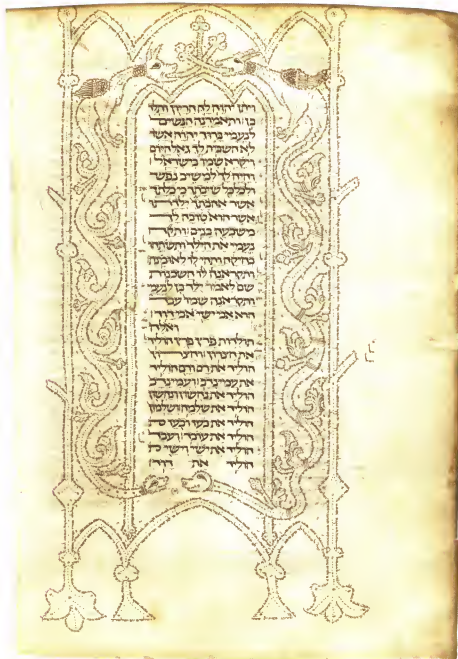 ויתן יהוה לה הריון ותלד
בן ותאמרנה הנשים
לנעמי ברוך יהוה אשר
לא השבית לך גאל היום
ויקרא שמו בישראל
והיה לך למשיב נפש
ולכלכל שיבתך כי כלתך
אשר אהבתך ילדתו
אשר הוא טובה לך
משבעה בנים ותקח
נעמי את הילד ותשתהו
בחיקה ותהי לו לאומנת
ותקראנה לו השכנות
שם לאמר ילד בן לנעמי
ותקראנה שמו
הוא אבי ישי אבי דוד
ואלה
תולדות פרץ פרץ הוליד
את חצרון וחצרון
הוליד את רם ורם הוליד
את עמינדב ועמינדב
הוליד את נחשון ונחשון
הוליד את שלמה ושלמון
הוליד את בעז ובעז
הוליד את עובד ועבד
הוליד את ישי וישי
הוליד את דוד